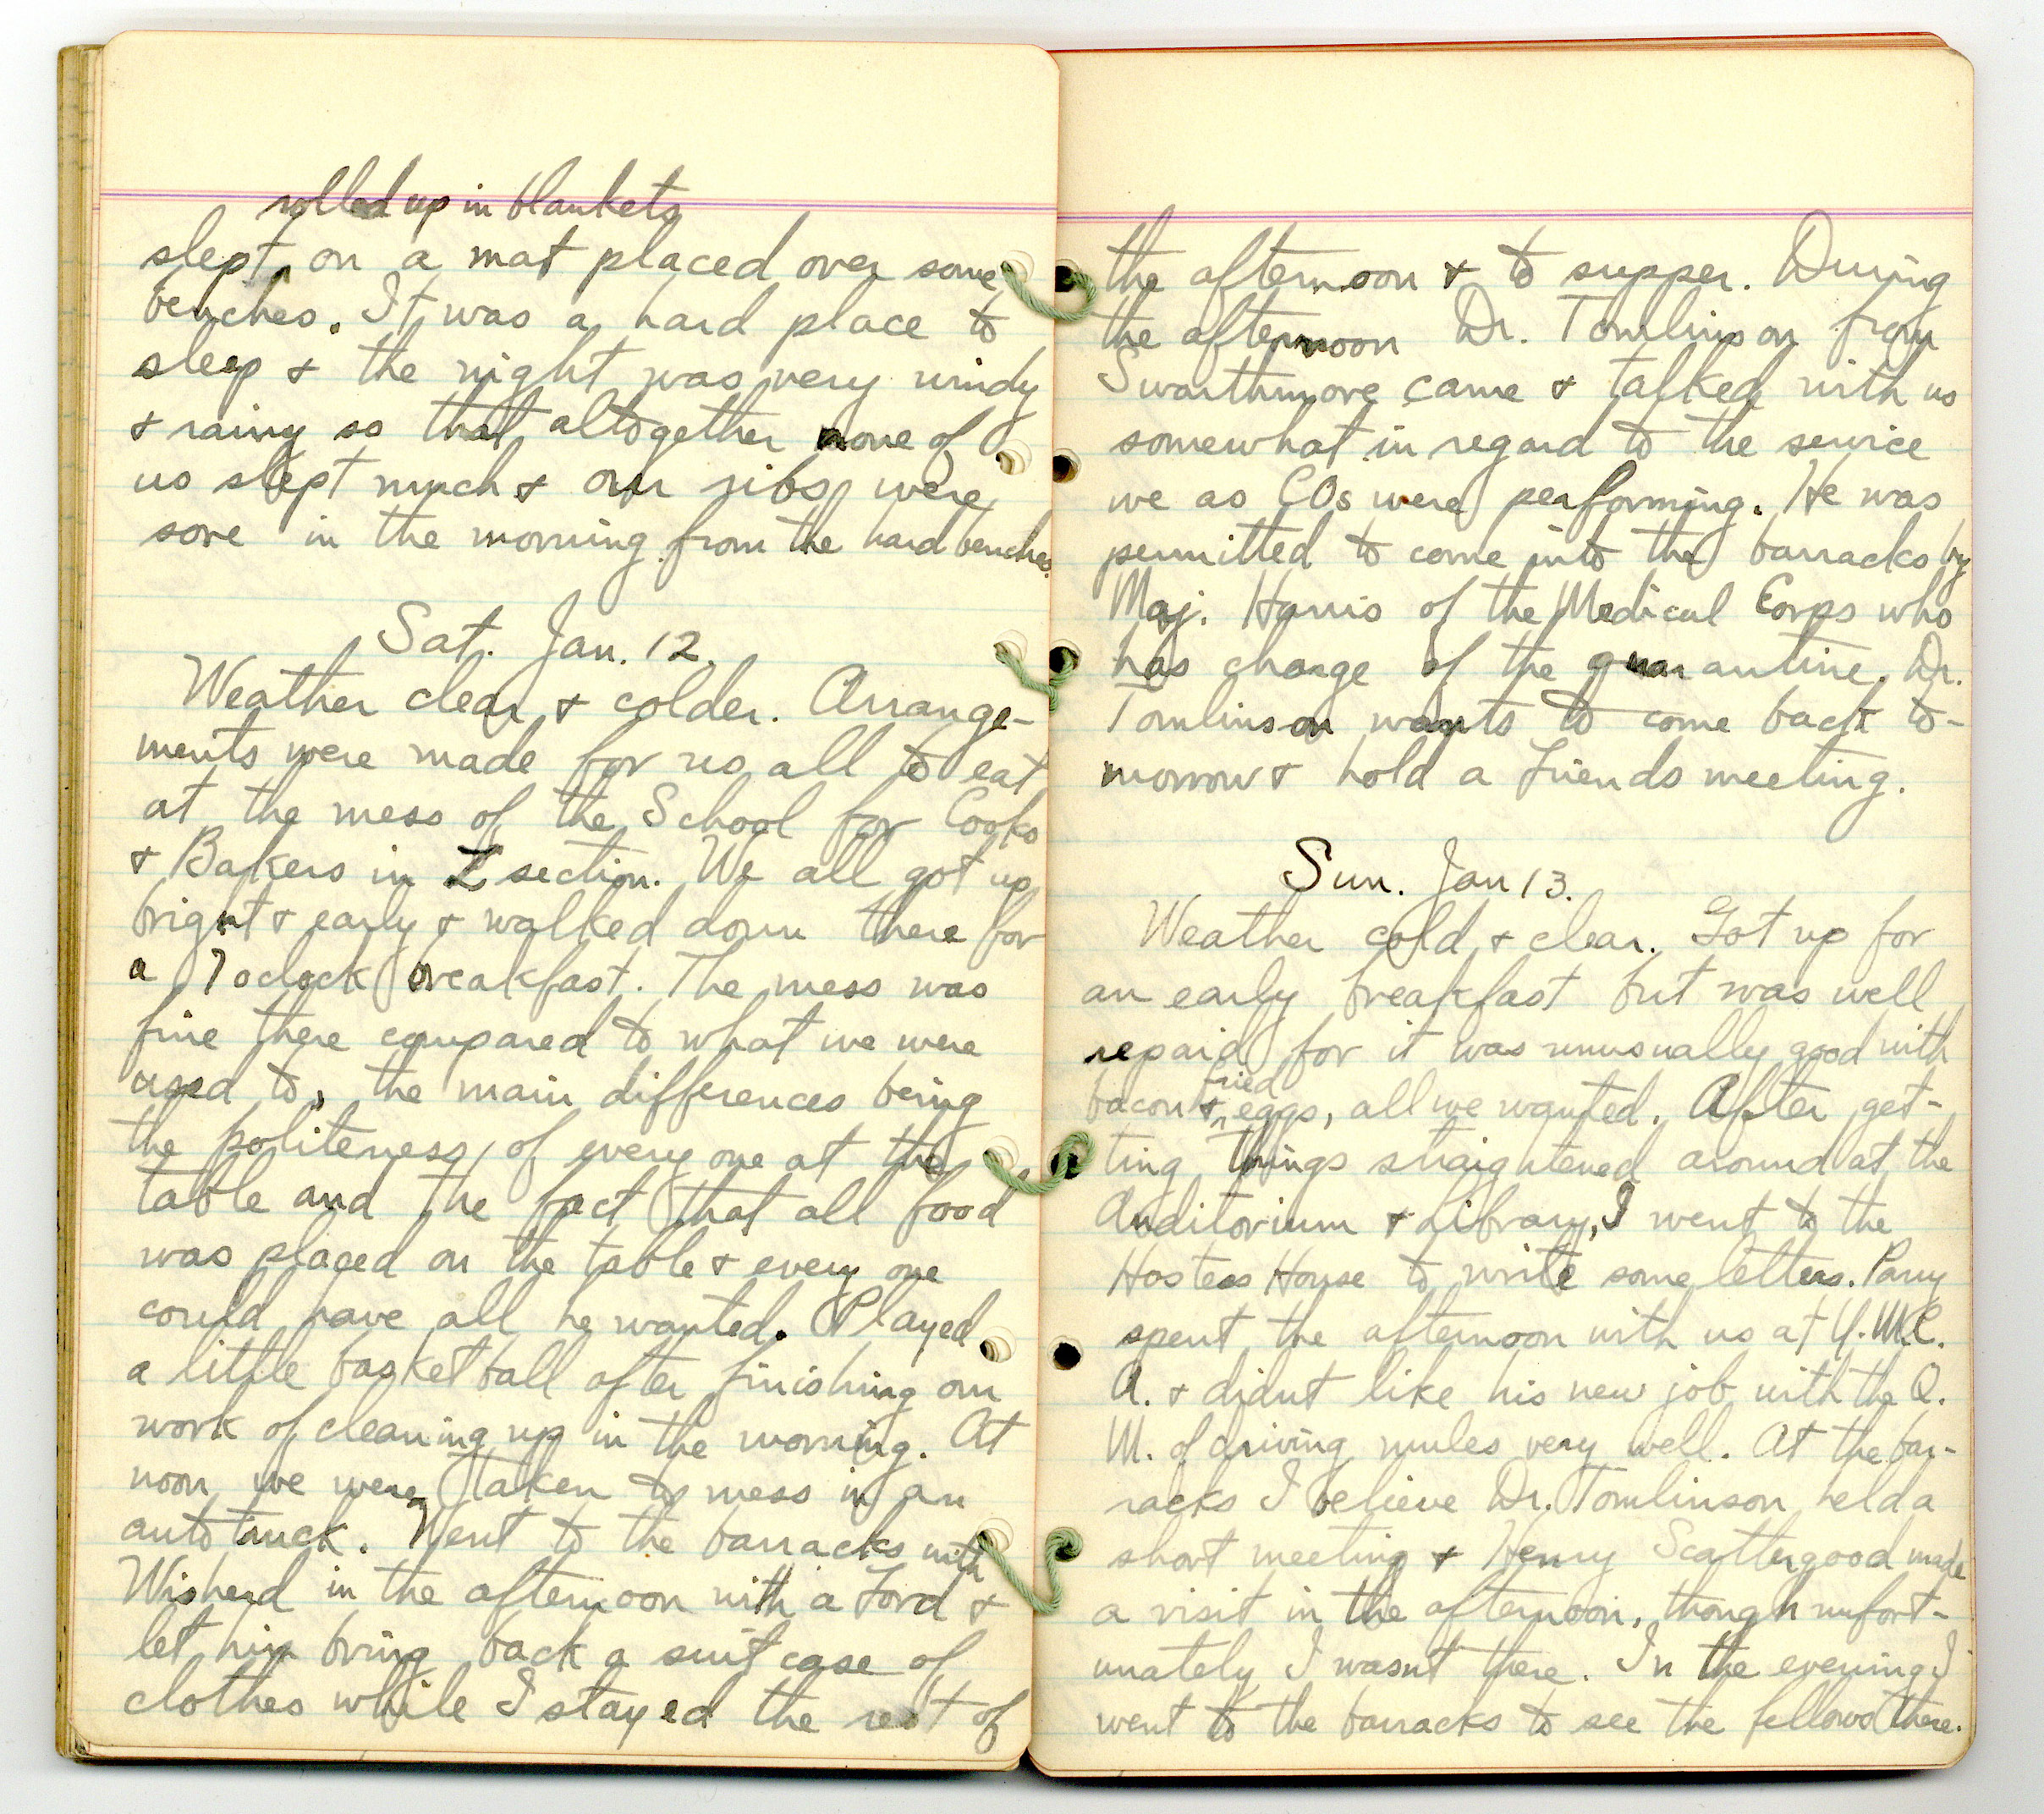 rolled up in blankets
slept ^ on a mat placed over some
benches. It was a hard place to
sleep & the night was very windy
& rainy so that altogether none of
us slept much & our ribs were
sore in the morning from the hard benches.
Sat. Jan. 12.
Weather clear & colder. Arrange-
ments were made for us all to eat
at the mess of the School for Cooks
& Bakers in Z section. We all got up
bright & early & walked down there for
a 7 oclock breakfast. The mess was
fine there compared to what we were
used to, the main differences being
the politeness of every one at the
table and the fact that all food
was placed on the table & every one
could have all he wanted. Played
a little basket ball after finishing our
work of cleaning up in the morning. At
noon we were taken to mess in an
auto truck. Went to the barracks with
Wisherd in the afternoon with a Ford &
let him bring back a suit case of
clothes while I stayed the rest of
the afternoon & to supper. During
the afternoon Dr. Tomlinson from
Swarthmore came & talked with us
somewhat in regard to the service
we as COs were performing. He was
permitted to come into the barracks by
Maj. Harris of the Medical Corps who
has charge of the quarantine. Dr.
Tomlinson wants to come back to-
morrow & hold a Friends meeting.
Sun. Jan 13.
Weather cold & clear. Got up for
an early breakfast but was well
repaid for it was unusually good with
fried
bacon & ^ eggs, all we wanted. After get-
ting things straightened around at the
Auditorium & Library, I went to the
Hostess House to write some letters. Parry
spent the afternoon with us at Y.M.C.
A. & didnt like his new job with the Q.
M. of driving mules very well. At the bar-
racks I believe Dr. Tomlinson held a
short meeting & Henry Scattergood made
a visit in the afternoon, though unfort-
unately I wasnt there. In the evening I
went to the barracks to see the fellows there.